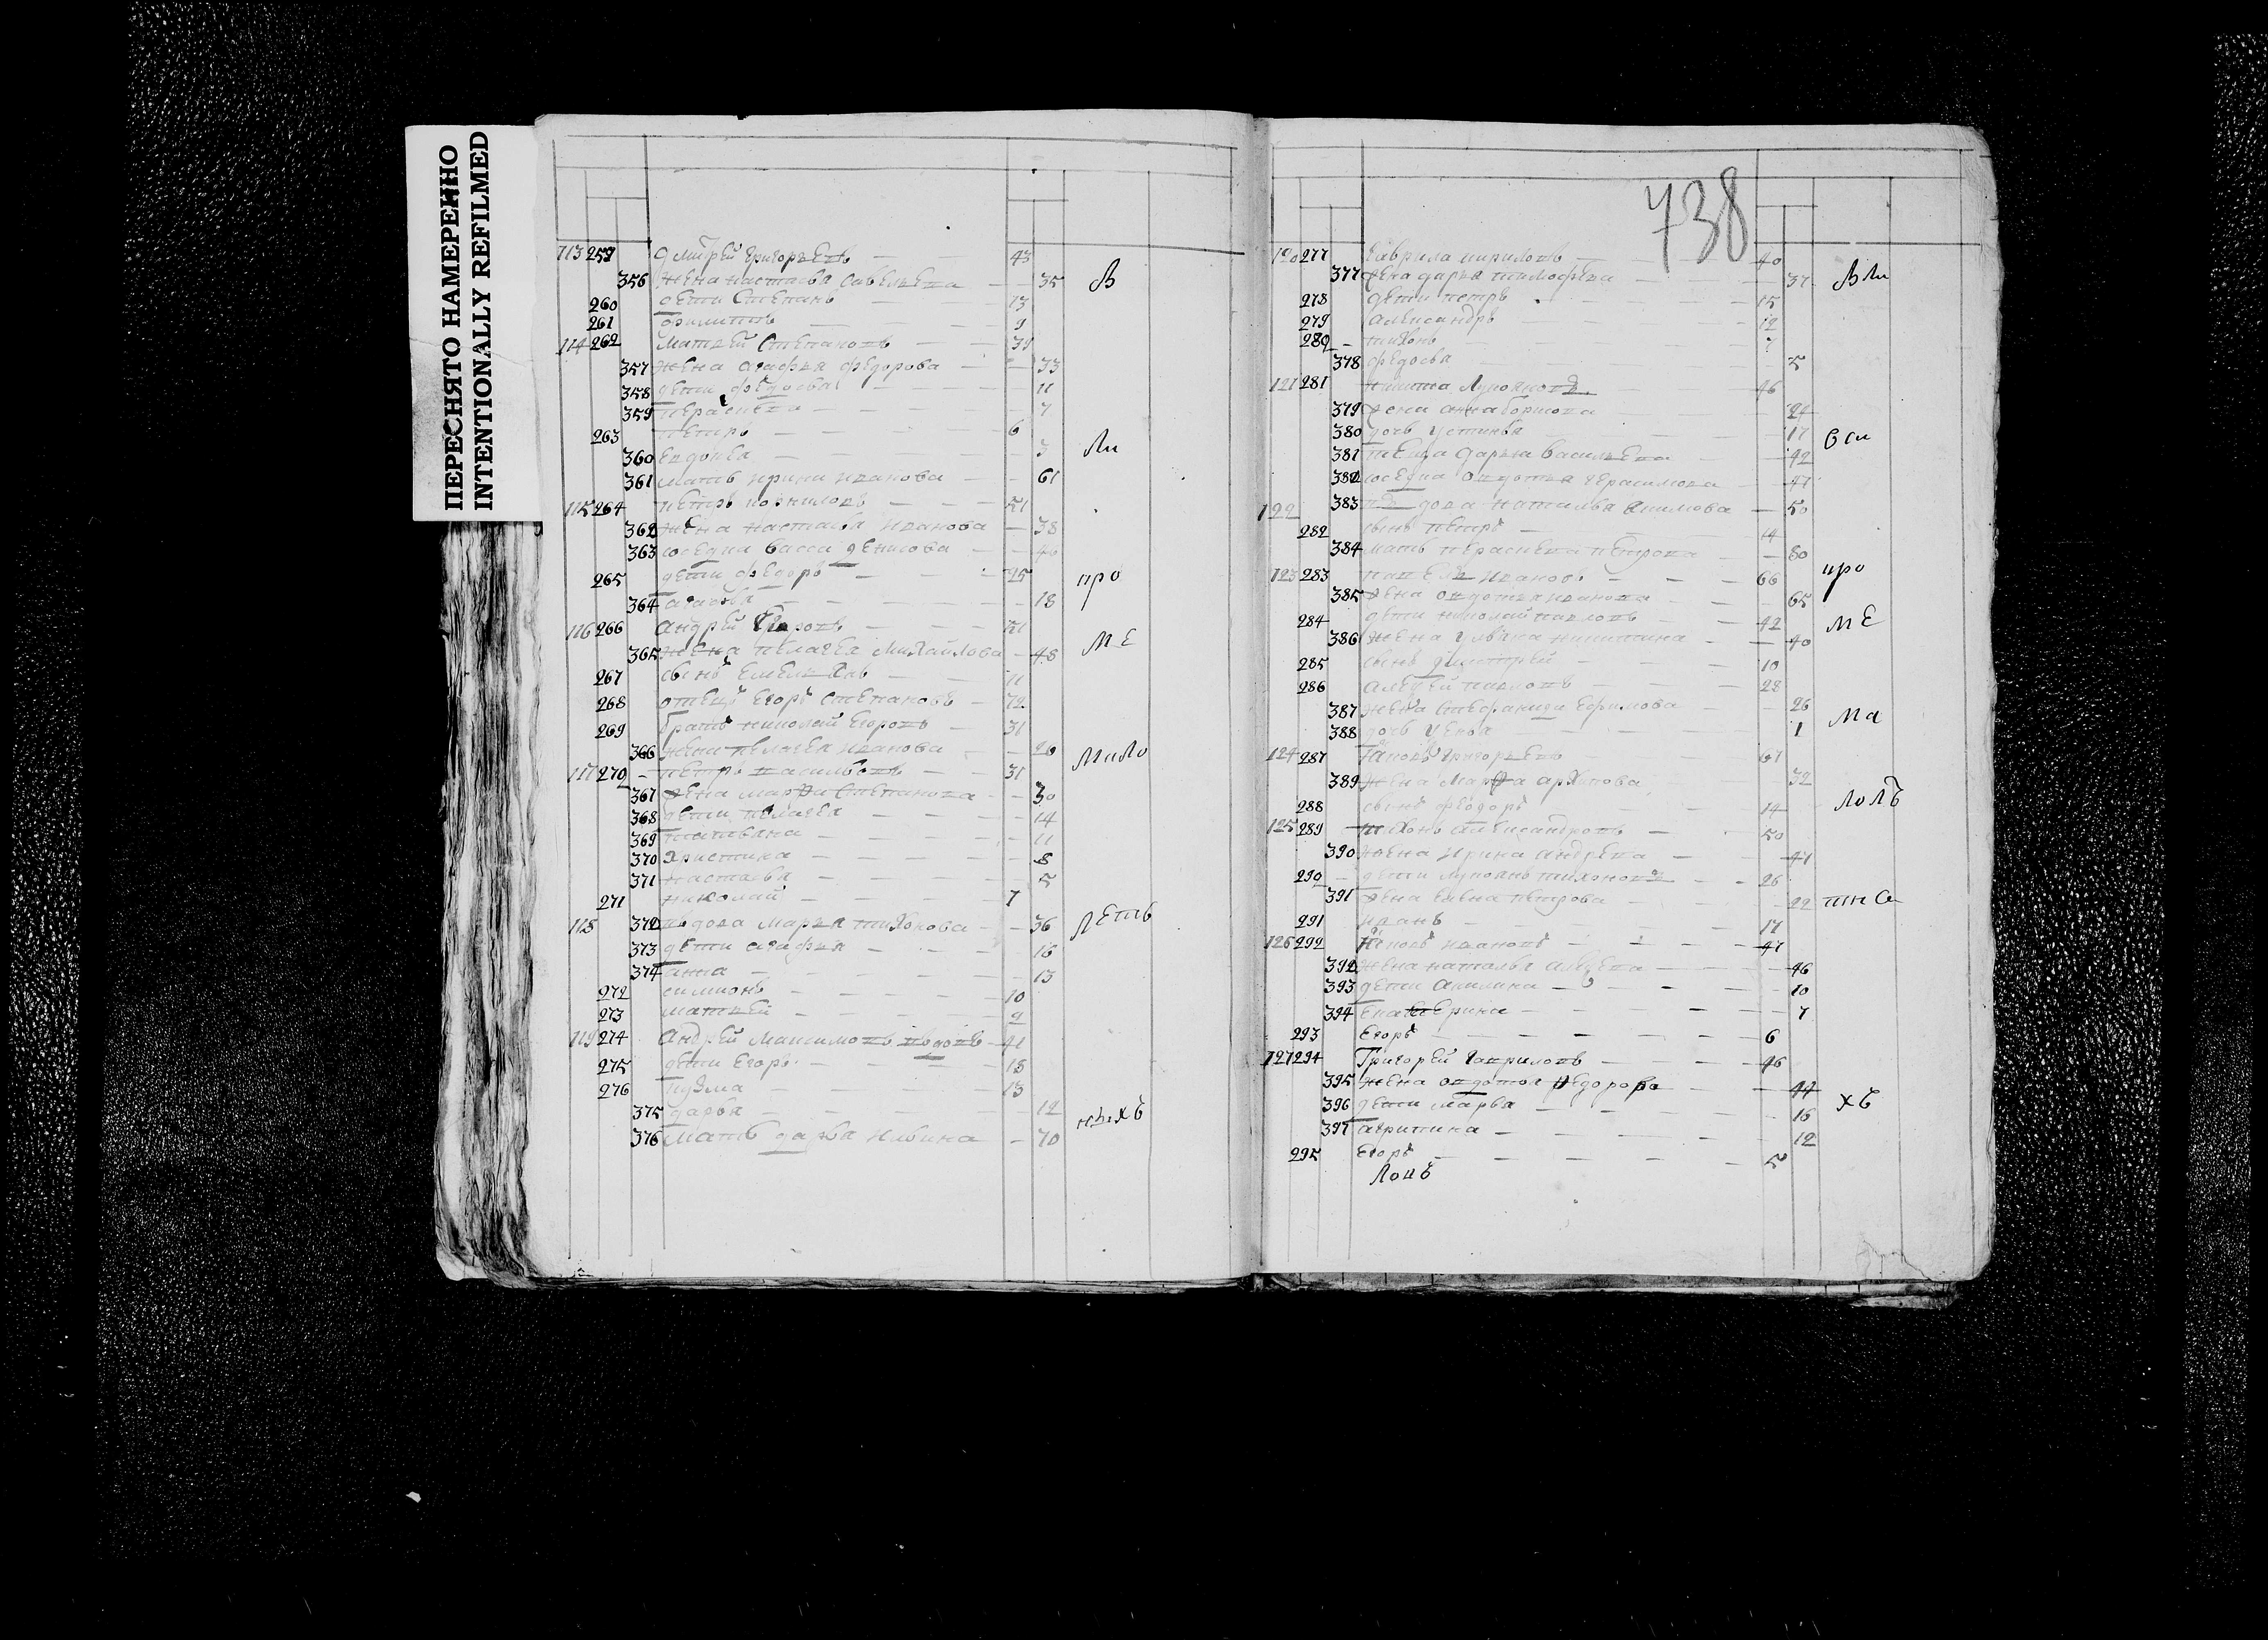 ПЕРЕСНЯТО НАМЕРЕННО
INTENTIONALLY REFILMED
738
113 259 Дмитрей григорьевъ 43
356 жена настасья савельева 35 В
260 дети Степанъ 13
261 филиппъ 9
114 262 матвей Степановъ
357 жена агафья федорова 33
358 дети федосья 11
359 парасковья 7
263 петръ 6
360 евдокея 3 Ли
361 мать ирина иванова 61
115 264 петръ корниловъ 51
362 жена настасья иванова 38
363 соседка васса денисова
265 дети федоръ 25 про
364 агафья 18
116 266 андрей Егоровъ 51
365 жена пелагея михайлова 48 МЕ
267 сынъ Емельянъ 11
268 отецъ Егоръ степановъ 72
269 братъ николай Егоровъ 31
366 жена пелагея иванова 20 МиЛо
117 270 петръ васильевъ 31
367 жена марфа Степанова 30
368 дети пелагея 14
369 татьяна 11
370 христина 8
371 настасья 5
271 николай 7
118 372 вдова марья тихонова 36 ЛЕть
373 дети агафья 16
374 анна 13
272 симионъ 10
273 матвей 9
119 274 андрей максимовъ вдовъ 41
275 дети Егоръ 18
276 кузма 13
375 дарья 12 ныхъ
376 мать дарья ильина 70
120 277 гаврила кириловъ 40
377 жена дарья тимофеева 37 ВЛи
278 дети петръ 15
279 александръ 12
280 тихонъ 7
378 федосья 5
121 281 никита Лукояновъ 46
379 жена анна борисова 24
380 дочь устинья 17 Сси
381 теща дарья васильева 42
382 соседка овдотья герасимова 41
122 383 вдова наталья акимова 50
282 сынъ петръ 14
384 мать парасковья петрова 80
123 283 павелъ ивановъ 66 про
385 жена овдотья иванова 65
284 дети николай павловъ 42 МЕ
386 жена ульяна никитина 40
285 сынъ димитрей 10
286 алексей павловъ 28
387 жена стефанида Ефимова 26 Ма
388 дочь 1
124 287 яковъ григорьевъ 61
389 жена марфа архипова 32
288 сынъ феодоръ 14 ЛоЛѣ
125 289 тихонъ александровъ 50
390 жена ирина андреева 47
290 дети лукоянъ тихоновъ 26
391 жена Елена петрова 22 тнЄ
291 иванъ 17
126 292 яковъ ивановъ 47
392 жена наталья алексеева 46
393 дети акилина 10
394 Екатерина 7
293 Егоръ 6
127 294 Григорей гавриловъ 46
395 жена овдотья федорова 44
396 дети марья 16 хъ
397 агрипина 12
295 Егоръ 5
Ловъ